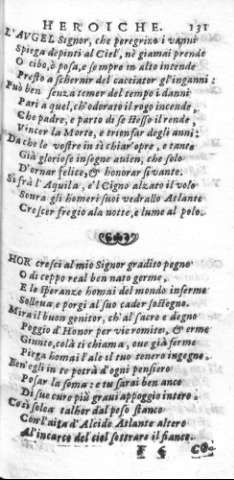 HEROICHE. 131
L'AVGEL Signor, che peregrino i vanni
Spiega depinti al Ciel', nè giamai prende
O cibo, ò posa, e sempre in alto intende
Presto a schernir del cacciator gl'inganni:
Può ben senza temer del tempo i danni
Pari a quel, ch'odorato il rogo incende,
Che padre, e parto di se stesso il rende,
Vincer la Morte, e trionfar degli anni:
Da che le vostre in sì chiar'opre, e tante
Già gloriose insegne auien, che solo
D'ornar felice, & honorar si vante.
Si frà l'Aquila, e'l Cigno alzato il volo
Soura gli homeri suoi vedrallo Atlante
Crescer fregio ala notte, e lume al polo.
HOR cresci al mio Signor gradito pegno
O di ceppo real ben nato germe,
E le speranze homai del mondo inferme
Solleua, e porgi al suo cader sostegno.
Mira il buon genitor, ch'al sacro e degno
Poggio d'Honor per vie romite, & erme
Giunto, colà ti chiama, oue già ferme
Piega homai l'ale il tuo tenero ingegno.
Ben'egli in te potrà d'ogni pensiero
Posar la soma: e tu sarai ben anco
Di sue cure più graui appoggio intero.
Così solea talhor dal peso stanco
Con l'aita d'Alcide Atlante altero
Al'incarco del ciel sottrare il fianco.
CO-